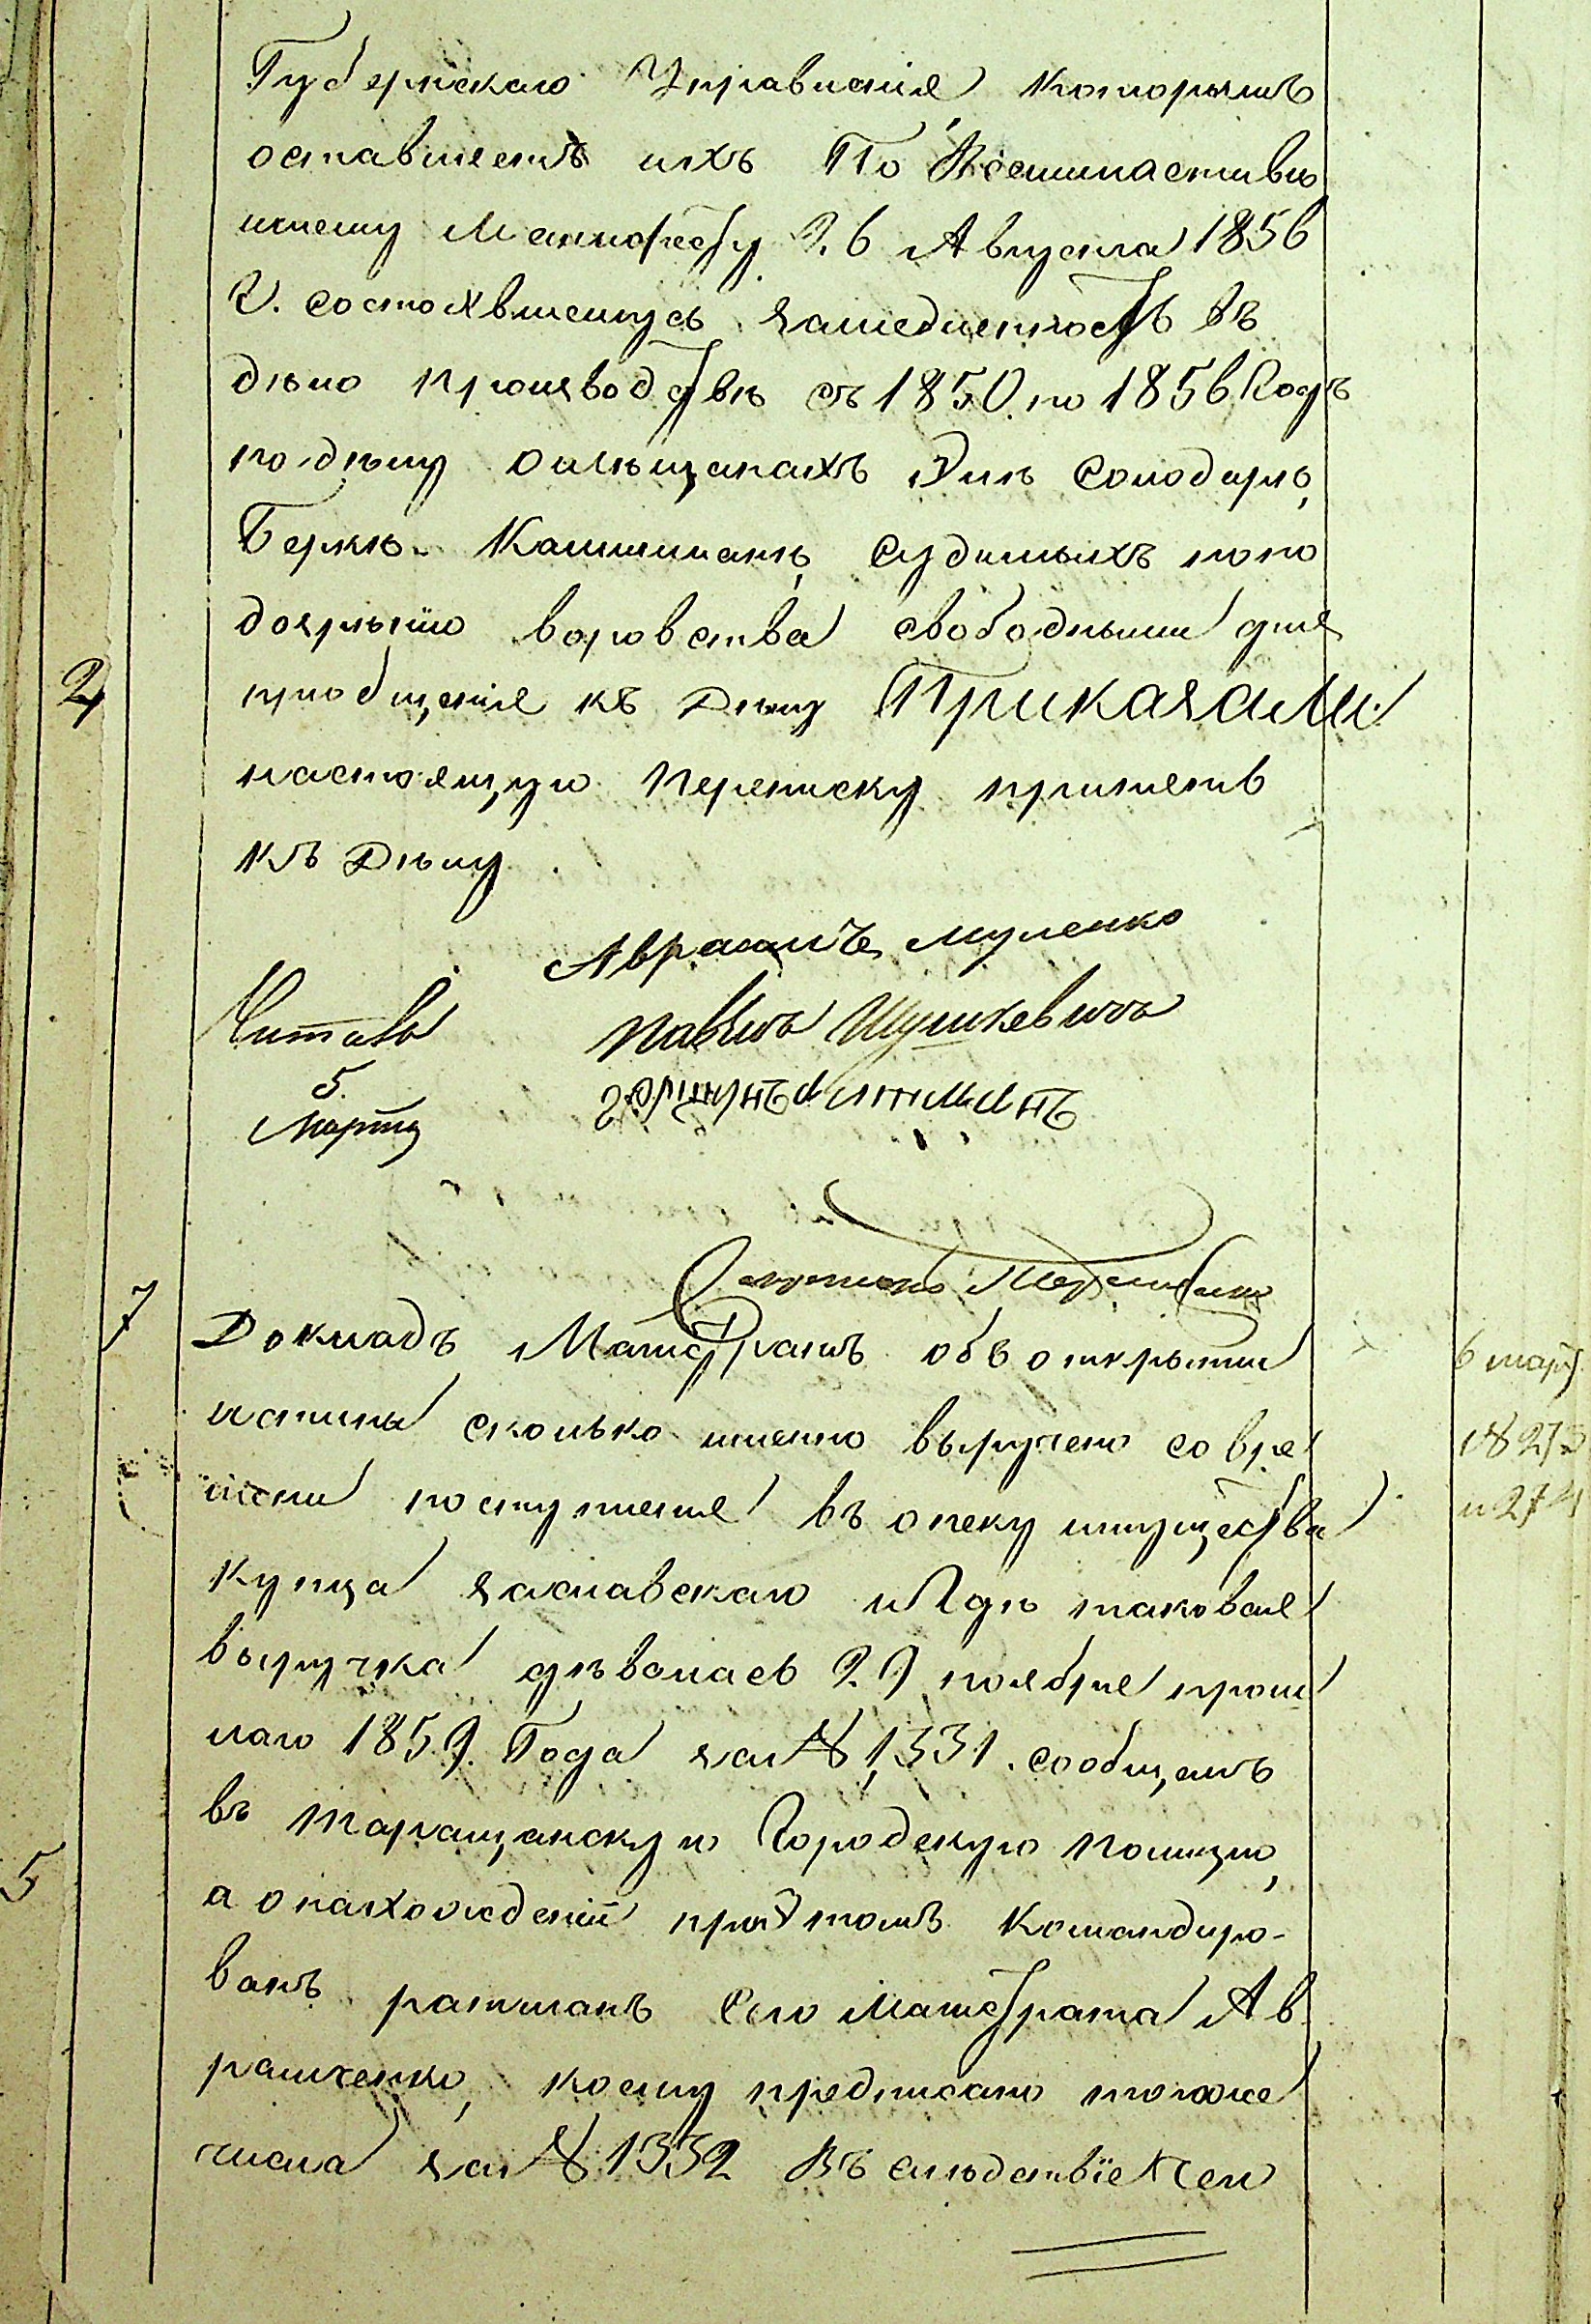 Губернскаго Управленія которымъ
оставляетъ ихъ По Всемилостивѣй
шему Манифесту 26 Августа 1856
г. состоявшемуся замедленность въ
дѣло производствѣ съ 1850 по 1856 Годъ
по дѣлу о мѣщанахъ Эль Солодарѣ,
Беркѣ Калшманѣ, судимыхъ по по
дозрѣнію воровства свободными для
пріобщенія къ Дѣлу Приказали
настоящую переписку пріобщить
къ Дѣлу
Аврамъ Муленко
Читалъ Павелъ Шулькевичъ
5
Марта
2
7
Докладъ Магистратъ объ открытіи
истины сколько именно выручено со вре
мени поступленія въ опеку имущества
купца Заславскаго и Гдѣ таковая
выручка дѣвалась 29 ноября прош
лаго 1859 Года за № 1,331 сообщалъ
въ Таращанскую Городскую полицію,
а о нахожденіи при томъ командиро-
ванъ ратманъ сего Магистрата Ав
раменко, коему предписано того же
числа за № 1332 Въ слѣдствіе чего
6 март
№ 273
и 274
5